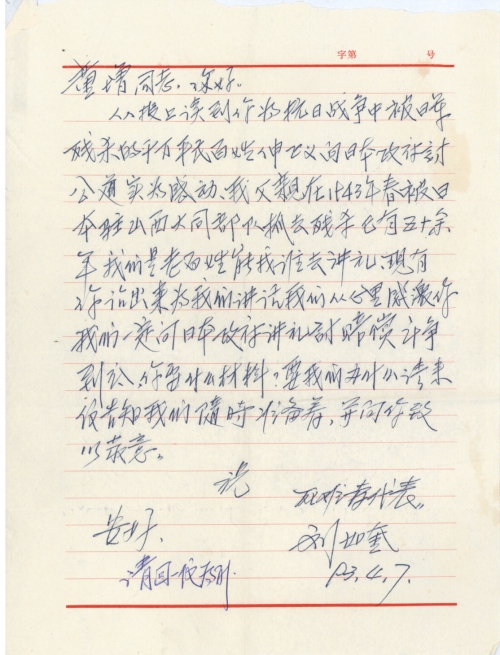 字第 号
童增同志，你好。
从报上读到你为抗日战争中被日军
残杀的千万平民百姓伸正义向日本政府讨
公道实为感动，我父亲在1943年春被日
本驻山西大同部队抓去残杀已有五十余
年我们是老百姓能找谁去讲礼，现有
你站出来为我们讲话我们从心里感激你
我们一定向日本政府讲礼讨赔偿斗争
到底，你要什么材料？要我们为什么请来
信告知我们随时准备着，并向你致
以敬意。
祝
安好。
受难者代表。
刘如奎
93.4.7.
请回信